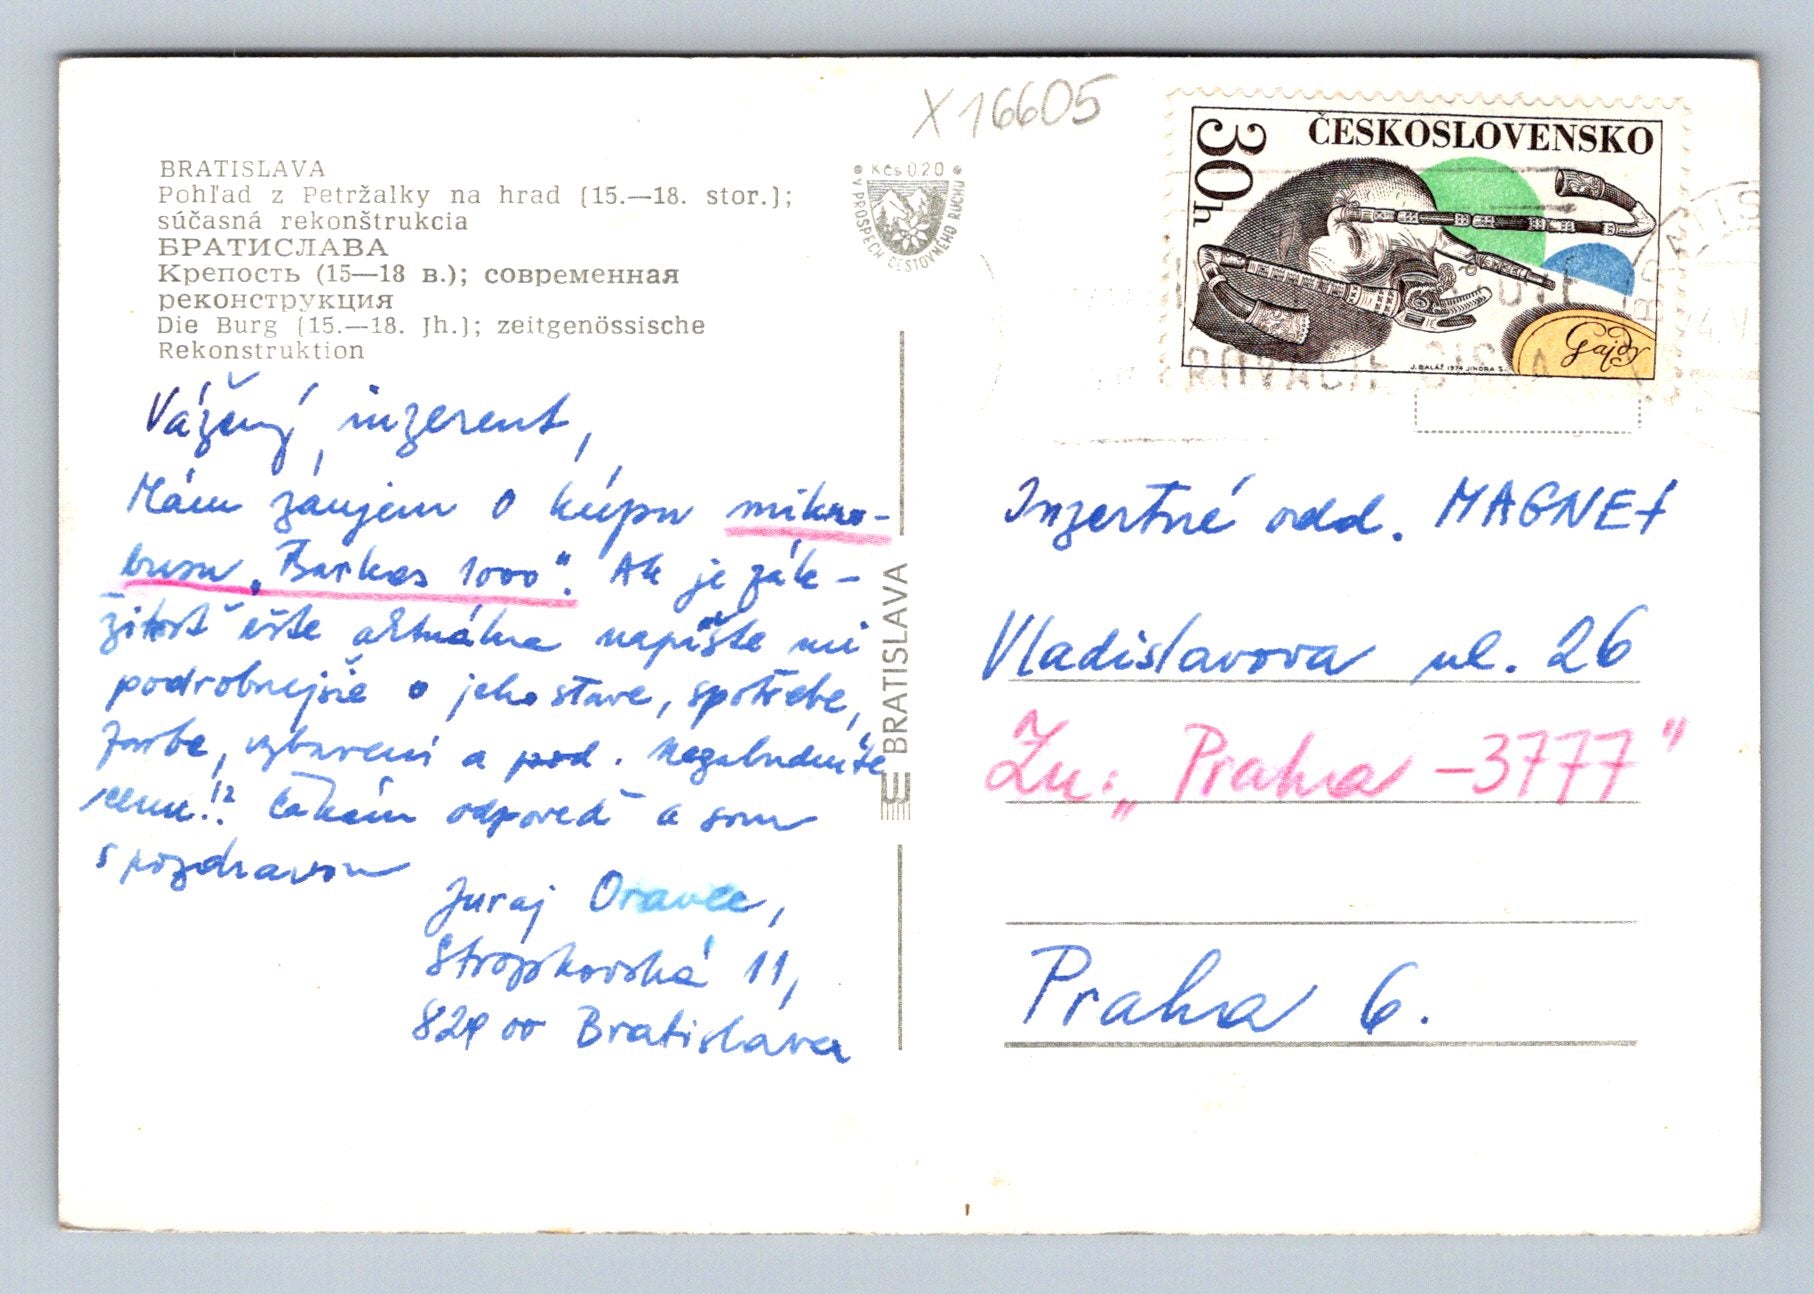 X 16605
BRATISLAVA
Pohľad z Petržalky na hrad (15.—18. stor.);
súčasná rekonštrukcia
БРАТИСЛАВА
Крепость (15—18 в.); современная
реконструкция
Die Burg (15.—18. Jh.); zeitgenössische
Rekonstruktion
Kčs 0,20
V PROSPECH CESTOVNÉHO RUCHU
30h
ČESKOSLOVENSKO
Gajdy
J. BALÁŽ 1974 JINDRA S.
Vážený inzerent,
Mám záujem o kúpu mikro-
busu „Barkas 1000". Ak je zále-
žitosť ešte aktuálna napíšte mi
podrobnejšie o jeho stave, spotrebe,
farbe, vybavení a pod. Nezabudnite
cenu!? Čakám odpoveď a som
s pozdravom
Juraj Oravec,
Stropkovská 11,
829 00 Bratislava
BRATISLAVA
Inzertné odd. MAGNET
Vladislavova ul. 26
Zn: „Praha -3777"
Praha 6.